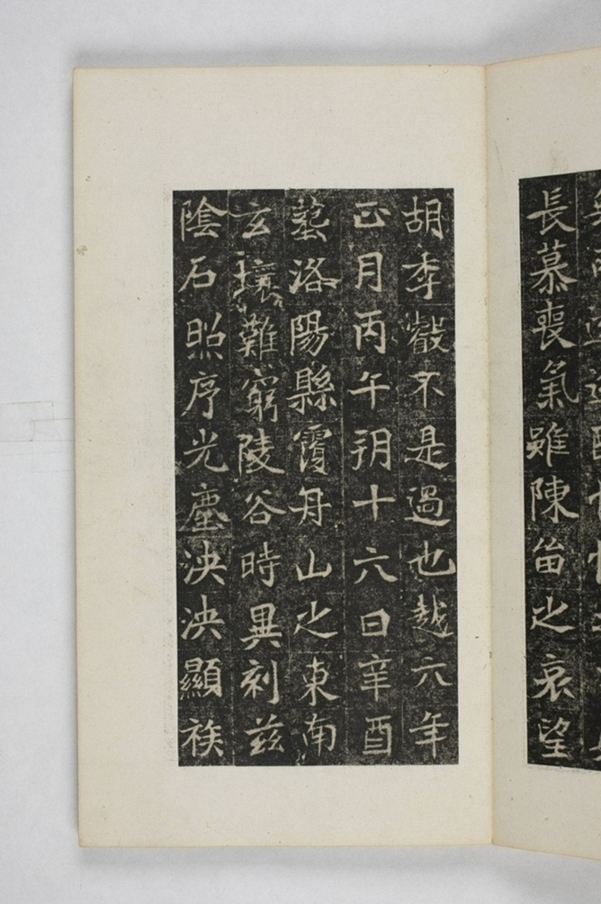 長慕喪氣雖陳畱之哀望
胡季叡不是過也越六年
正月丙午朔十六日辛酉
塟洛陽縣覆舟山之東南
玄壤難窮陵谷時異刻茲
陰石照序光塵泱泱顯族